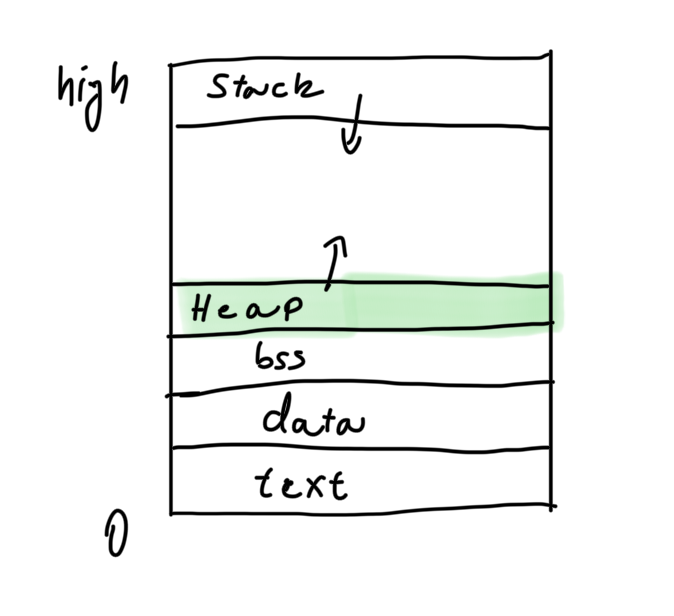 high
Stack
Heap
bss
data
text
0